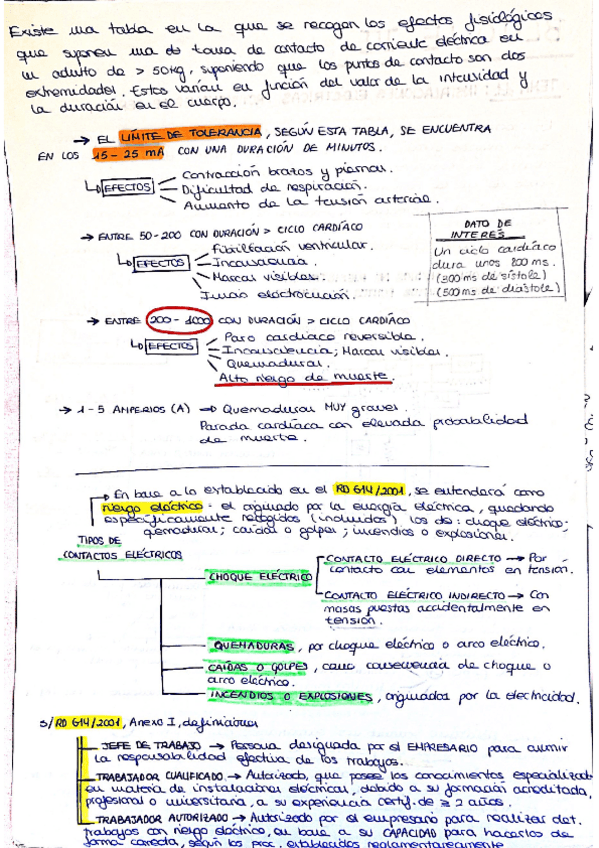 Existe una tabla en la que se recogen los efectos fisiológicos
que suponen una de toma de contacto de corriente eléctrica en
un adulto de > 50kg, suponiendo que los puntos de contacto son dos
extremidades. Estos varían en función del valor de la intensidad y
la duración en el cuerpo.
→ EL LÍMITE DE TOLERANCIA, SEGÚN ESTA TABLA, SE ENCUENTRA
EN LOS 15-25 mA CON UNA DURACIÓN DE MINUTOS.
EFECTOS
Contracción brazos y piernas.
Dificultad de respiración.
Aumento de la tensión arterial.
→ ENTRE 50-200 CON DURACIÓN > CICLO CARDÍACO
EFECTOS
Fibrilación ventricular.
Inconsciencia.
Marcas visibles.
Inicio electrocución.
DATO DE
INTERÉS
Un ciclo cardíaco
dura unos 800 ms.
(300 ms de sístole)
(500 ms de diástole)
→ ENTRE 200-1000 CON DURACIÓN > CICLO CARDÍACO
EFECTOS
Paro cardíaco reversible.
Inconsciencia; Marcas visibles.
Quemaduras.
Alto riesgo de muerte.
→ 1-5 AMPERIOS (A) → Quemaduras MUY graves.
Parada cardíaca con elevada probabilidad
de muerte.
En base a lo establecido en el RD 614/2001, se entenderá como
riesgo eléctrico: el originado por la energía eléctrica, quedando
específicamente recogidos (incluidos) los de: choque eléctrico;
quemaduras; caídas o golpes; incendios o explosiones.
TIPOS DE
CONTACTOS ELÉCTRICOS
CHOQUE ELÉCTRICO
CONTACTO ELÉCTRICO DIRECTO → Por
contacto con elementos en tensión.
CONTACTO ELÉCTRICO INDIRECTO → Con
masas puestas accidentalmente en
tensión.
QUEMADURAS, por choque eléctrico o arco eléctrico.
CAÍDAS O GOLPES, como consecuencia de choque o
arco eléctrico.
INCENDIOS O EXPLOSIONES, originados por la electricidad.
S/ RD 614/2001, Anexo I, definiciones
JEFE DE TRABAJO → Persona designada por el EMPRESARIO para asumir
la responsabilidad efectiva de los trabajos.
TRABAJADOR CUALIFICADO → Autorizado, que posee los conocimientos especializad
en materia de instalaciones eléctricas, debido a su formación acreditada,
profesional o universitaria, o su experiencia certif. de ≥ 2 años.
TRABAJADOR AUTORIZADO → Autorizado por el empresario para realizar det.
trabajos con riesgo eléctrico, en base a su CAPACIDAD para hacerlos de
forma correcta, según los proc. establecidos reglamentariamente